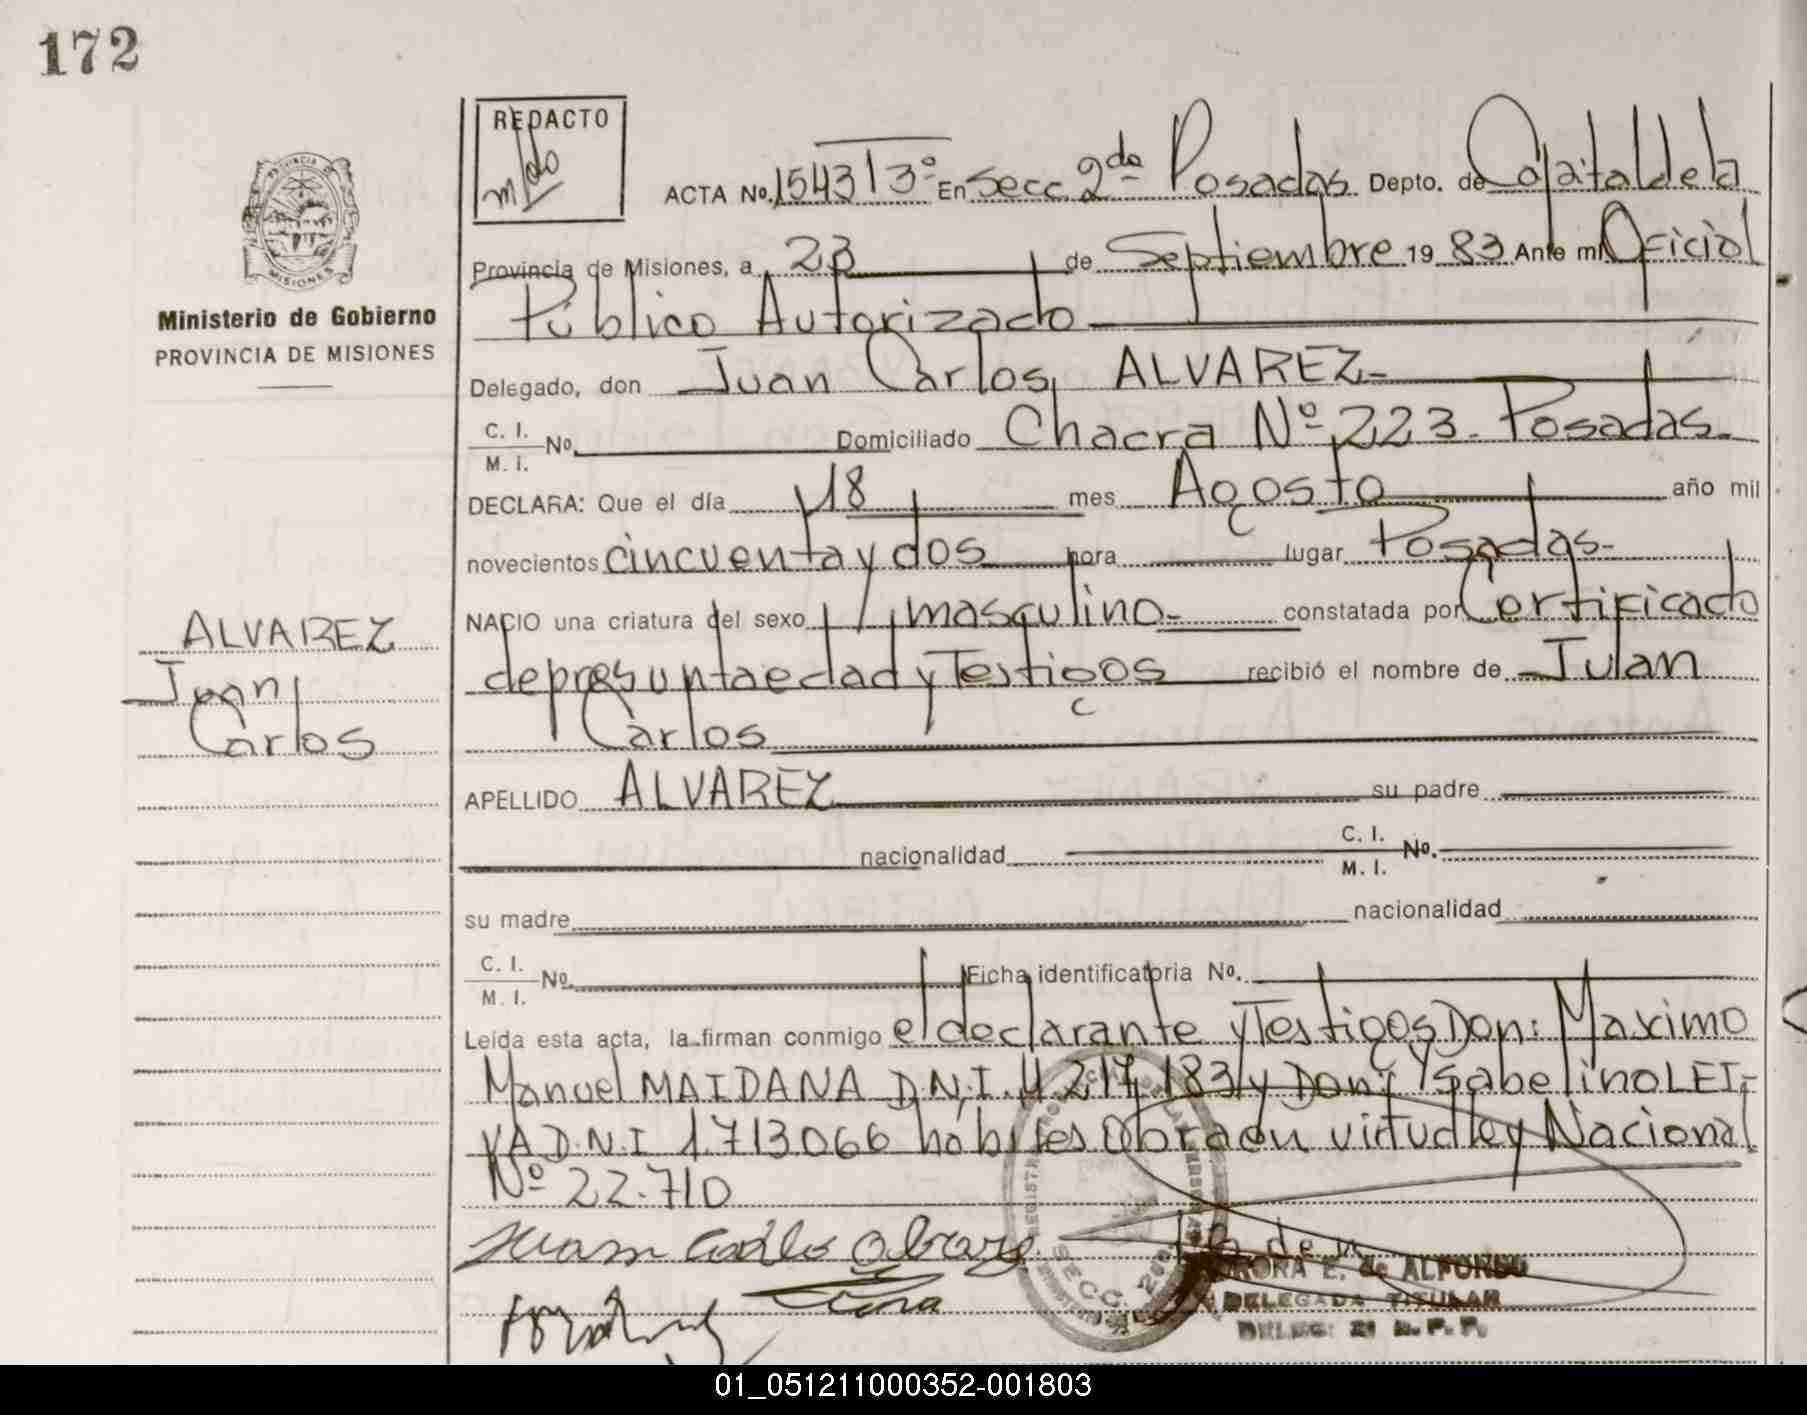 172
REDACTO
mdo
PROVINCIA
MISIONES
Ministerio de Gobierno
PROVINCIA DE MISIONES
ACTA No. 1543 T 3º En Secc 2da Posadas Depto. de Capital de la
Provincia de Misiones, a 23 de Septiembre 19 83 Ante mi Oficial
Público Autorizado
Delegado, don Juan Carlos ALVAREZ
C. I. / M. I. No. Domiciliado Chacra Nº 223. Posadas.
DECLARA: Que el día 18 mes Agosto año mil
novecientos cincuenta y dos hora lugar Posadas-
NACIO una criatura del sexo masculino- constatada por Certificado
de presunta edad y Testigos recibió el nombre de Juan
Carlos
ALVAREZ
Juan
Carlos
APELLIDO ALVAREZ su padre
nacionalidad C. I. / M. I. No.
su madre nacionalidad
C. I. / M. I. No. Ficha identificatoria No.
Leída esta acta, la firman conmigo el declarante y Testigos Don: Maximo
Manuel MAIDANA D.N.I. 4.217.183 y Don: Ysabelino LEI-
VA D.N.I 1.713066 hábiles Obra en virtud ley Nacional
Nº 22.710
Juan Carlos Alvarez
SECC. 2da
E. de ALFONSO
DELEGADA TITULAR
DELEG: 2ª R. P. P.
01_051211000352-001803